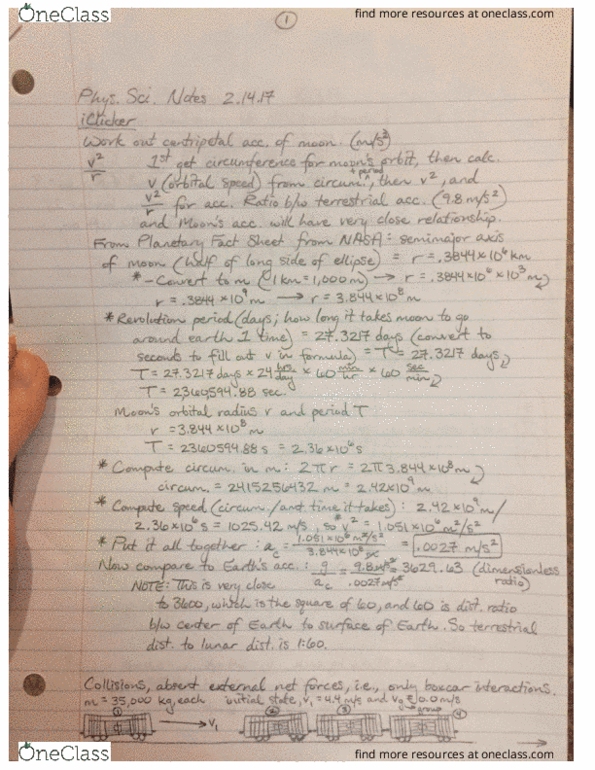 OneClass
find more resources at oneclass.com
1
Phys. Sci. Notes 2.14.17
iClicker
Work out centripetal acc. of moon. (m/s²)
v²/r 1st get circumference for moon's orbit, then calc.
v (orbital speed) from circum. + period, then v², and
v²/r for acc. Ratio b/w terrestrial acc. (9.8 m/s²)
and Moon's acc. will have very close relationship.
From Planetary Fact Sheet from NASA: semimajor axis
of moon (half of long side of ellipse) = r = .3844×10⁶ km
* - Convert to m (1 km = 1,000 m) → r = .3844×10⁶ × 10³ m
r = .3844×10⁹ m → r = 3.844×10⁸ m
* Revolution period (days; how long it takes moon to go
around earth 1 time) = 27.3217 days (convert to
seconds to fill out v in formula) = T = 27.3217 days
T = 27.3217 days × 24 hrs/day × 60 min/hr × 60 sec/min
T = 2360594.88 sec.
Moon's orbital radius r and period T
r = 3.844×10⁸ m
T = 2360594.88 s = 2.36×10⁶ s
* Compute circum. in m: 2πr = 2π 3.844×10⁸ m
circum. = 2415256432 m = 2.42×10⁹ m
* Compute speed (circum./amt time it takes): 2.42×10⁹ m/
2.36×10⁶ s = 1025.42 m/s, so v² = 1.051×10⁶ m²/s²
* Put it all together: a_c = 1.051×10⁶ m²/s² / 3.844×10⁸ m = .0027 m/s²
Now compare to Earth's acc.: g/a_c = 9.8 m/s² / .0027 m/s² = 3629.63 (dimensionless
ratio)
NOTE: This is very close
to 3600, which is the square of 60, and 60 is dist. ratio
b/w center of Earth to surface of Earth. So terrestrial
dist. to lunar dist. is 1:60.
Collisions, absent external net forces, i.e., only boxcar interactions.
m = 35,000 kg, each initial state, v₁ = 4.4 m/s and v₀ = 0.0 m/s
group
1 v₁ 2 3 4
OneClass
find more resources at oneclass.com